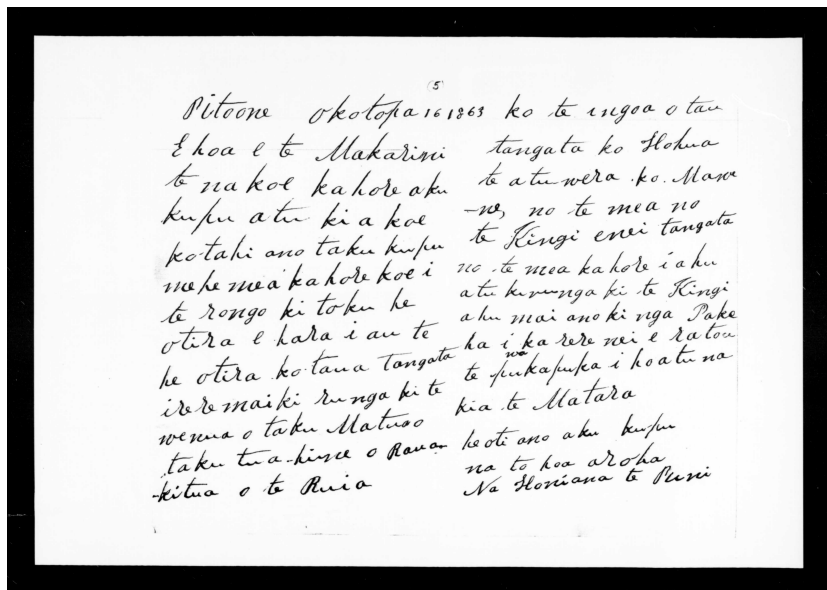 (5)
Pitoone Okotopa 16 1863
E hoa e te Makarini
te na koe kahore aku
kupu atu ki a koe
kotahi ano taku kupu
mehe mea kahore koe i
te rongo ki toku he
otira e hara i au te
he otira ko taua tangata
i rere mai ki runga ki te
wenua o taku Matua o
taku tua-hine o Raua-
-kitua o te Ruia
ko te ingoa o tau
tangata ko Hohua
te atuwera ko Mawe
-ne, no te mea no
te Kingi enei tangata
no te mea kahore i ahu
atu ki runga ki te Kingi
ahu mai ano ki nga Pake
ha i ka rere nei e ratou
te pukapuka i hoatu na
wa
kia te Matara
heoti ano aku kupu
na to hoa aroha
Na Honiana te Puni